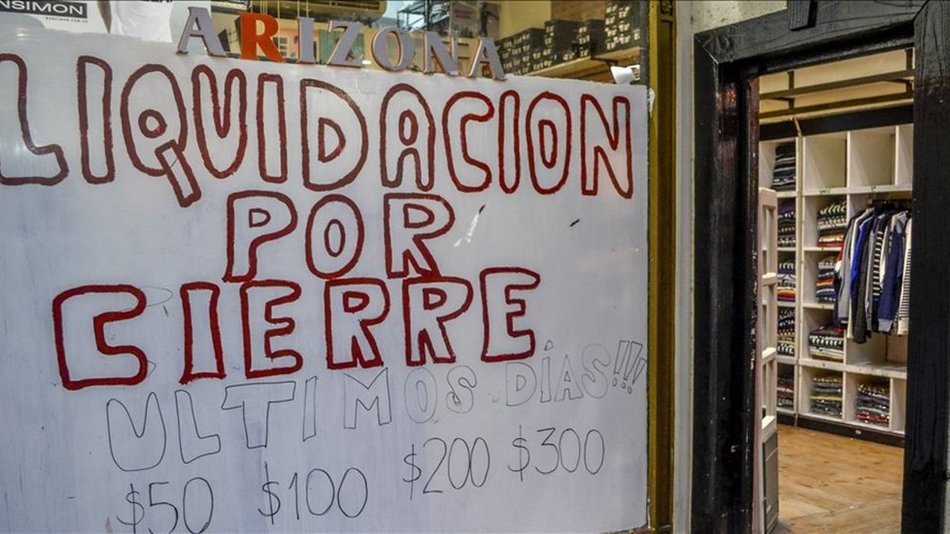 ENSIMON
ARIZONA
LIQUIDACION
POR
CIERRE
ULTIMOS DÍAS!!!
$50 $100 $200 $300